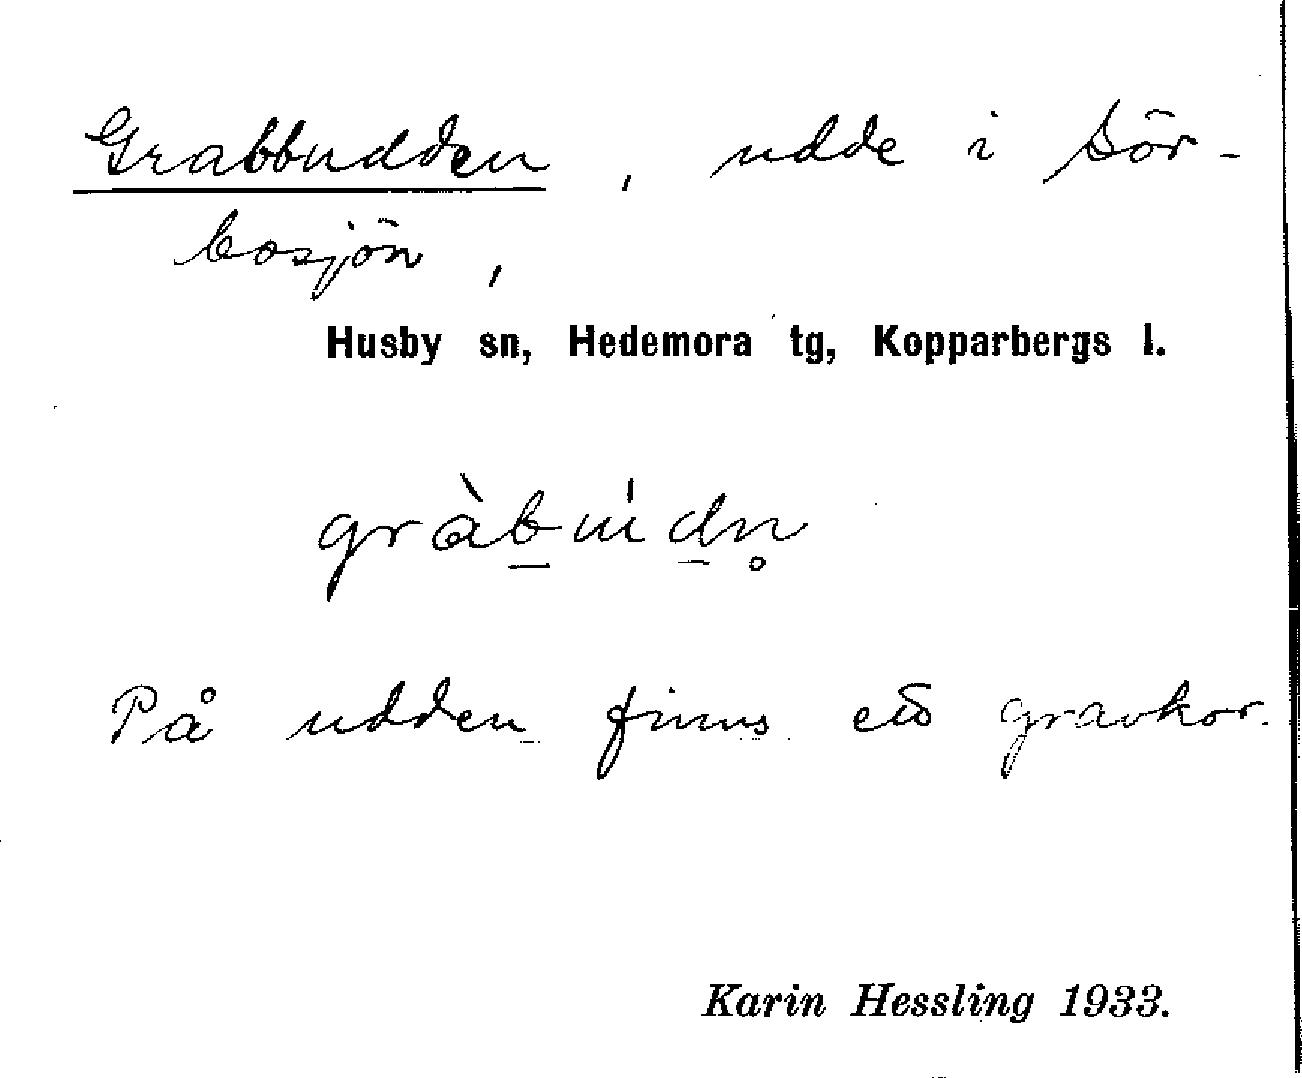 Grabbudden, udde i Sör-
bosjön,
Husby sn, Hedemora tg, Kopparbergs l.
gràb̲ úd̲n̥
På udden finns ett gravkor.
Karin Hessling 1933.